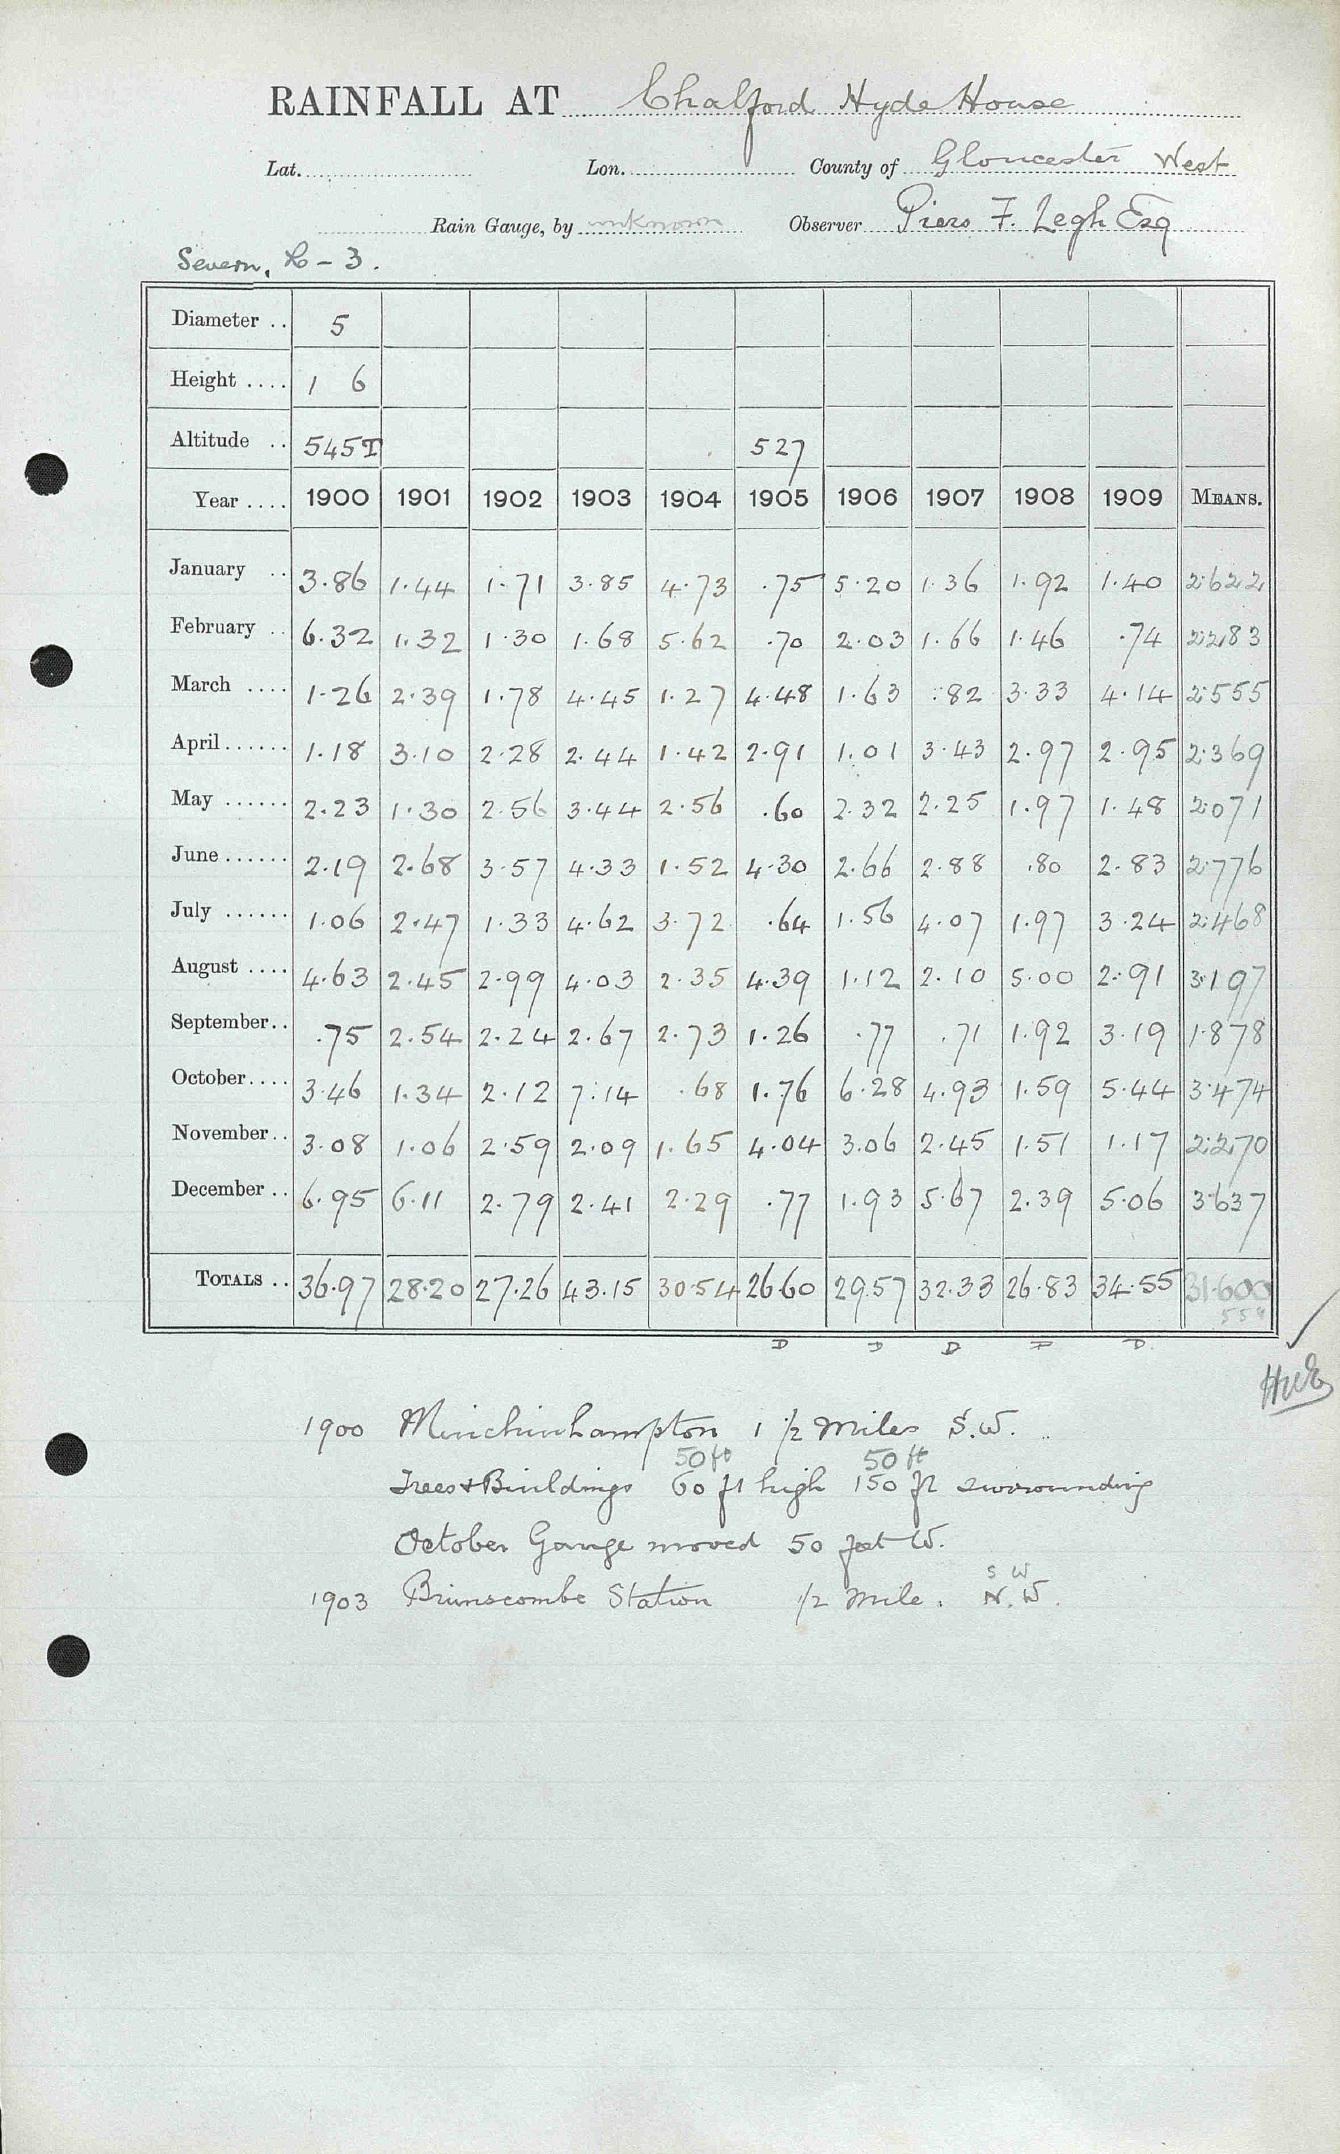 RAINFALL AT Chalford Hyde House
Lat. Lon. County of Gloucester West
Rain Gauge, by unknown Observer Piers F. Legh Esq
Severn, R - 3.
Diameter .. 5
Height .... 1 6
Altitude .. 545T 527
Year .... 1900 1901 1902 1903 1904 1905 1906 1907 1908 1909 MEANS.
January .. 3.86 1.44 1.71 3.85 4.73 .75 5.20 1.36 1.92 1.40 2.622
February .. 6.32 1.32 1.30 1.68 5.62 .70 2.03 1.66 1.46 .74 2.283
March .... 1.26 2.39 1.78 4.45 1.27 4.48 1.63 .82 3.33 4.14 2.555
April...... 1.18 3.10 2.28 2.44 1.42 2.91 1.01 3.43 2.97 2.95 2.369
May ...... 2.23 1.30 2.56 3.44 2.56 .60 2.32 2.25 1.97 1.48 2.071
June...... 2.19 2.68 3.57 4.33 1.52 4.30 2.66 2.88 .80 2.83 2.776
July ...... 1.06 2.47 1.33 4.62 3.72 .64 1.56 4.07 1.97 3.24 2.468
August .... 4.63 2.45 2.99 4.03 2.35 4.39 1.12 2.10 5.00 2.91 3.197
September.. .75 2.54 2.24 2.67 2.73 1.26 .77 .71 1.92 3.19 1.878
October.... 3.46 1.34 2.12 7.14 .68 1.76 6.28 4.93 1.59 5.44 3.474
November.. 3.08 1.06 2.59 2.09 1.65 4.04 3.06 2.45 1.51 1.17 2.270
December .. 6.95 6.11 2.79 2.41 2.29 .77 1.93 5.67 2.39 5.06 3.637
TOTALS .. 36.97 28.20 27.26 43.15 30.54 26.60 29.57 32.33 26.83 34.55 31.600
559
D D D D
1900 Minchinhampton 1 1/2 Miles S.W.
50 ft 50 ft
Trees & Buildings 60 ft high 150 ft surrounding
October Gauge moved 50 feet W.
S W
1903 Brimscombe Station 1/2 Mile. N.W.